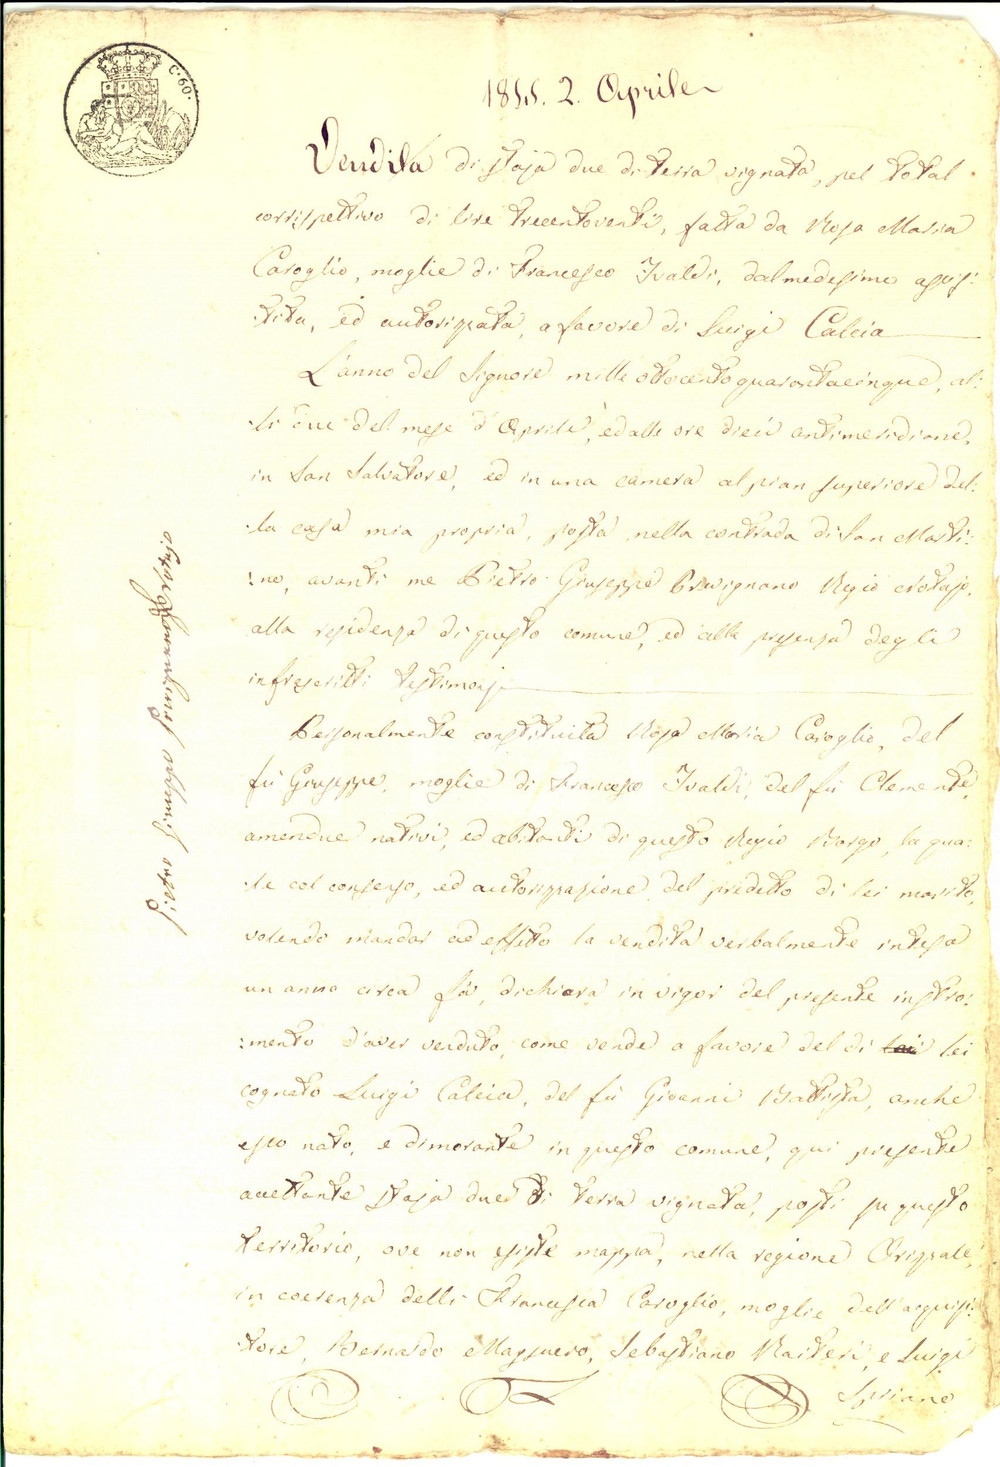 C. 60.
1845. 2. Aprile
Vendita di staja due di terra vignata, pel total
corrispettivo di lire trecentoventi, fatta da Rosa Maria
Caroglio, moglie di Francesco Ivaldi, dal medesimo assis:
:tita, ed autorizzata, a favore di Luigi Calcia
L'anno del Signore mille ottocento quarantacinque, al:
:li due del mese d'Aprile, ed alle ore dieci antimeridiane,
in San Salvatore, ed in una camera al pian superiore del:
:la casa mia propria, posta nella contrada di San Marti:
:no, avanti me Pietro Giuseppe Provignano Regio Notajo,
alla residenza di questo comune, ed alla presenza degli
infrascritti testimonj
Personalmente constituita Rosa Maria Caroglio, del
fu Giuseppe, moglie di Francesco Ivaldi, del fu Clemente,
amendue nativi, ed abitanti di questo Regio Borgo, la qua:
:le col consenso, ed autorizzazione del predetto di lei marito,
volendo mandar ad effetto la vendita verbalmente intesa
un anno circa fa, dichiara in vigor del presente instro:
:mento d'aver venduto, come vende a favore del di lei
cognato Luigi Calcia, del fu Gioanni Battista, anche
esso nato, e dimorante in questo comune, qui presente
accettante staja due di terra vignata, posti su questo
territorio, ove non esiste mappa, nella regione
in coerenza delli Francesca Caroglio, moglie dell'acquisi:
:tore, Bernardo Mazzuero, Sebastiano Raiteri, e Luigi
Spriano
Pietro Giuseppe Provignano Notajo